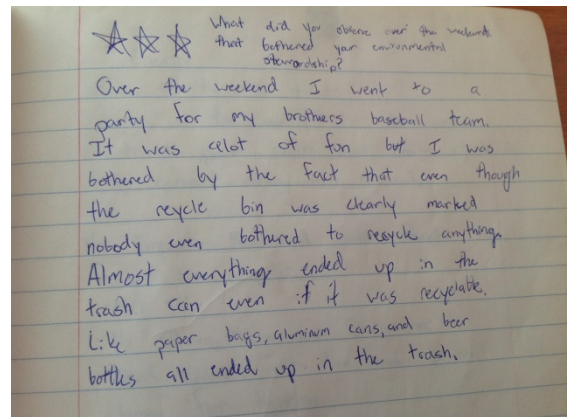 What did you observe over the weekend
that bothered your environmental
stewardship?
Over the weekend I went to a
party for my brothers baseball team.
It was alot of fun but I was
bothered by the fact that even though
the reycle bin was clearly marked
nobody even bothered to resycle anything.
Almost everything ended up in the
trash can even if it was recyclable.
Like paper bags, aluminum cans, and beer
bottles all ended up in the trash.